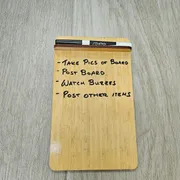 - Take Pics of Board
- Post Board
- Watch Buzzes
- Post other items